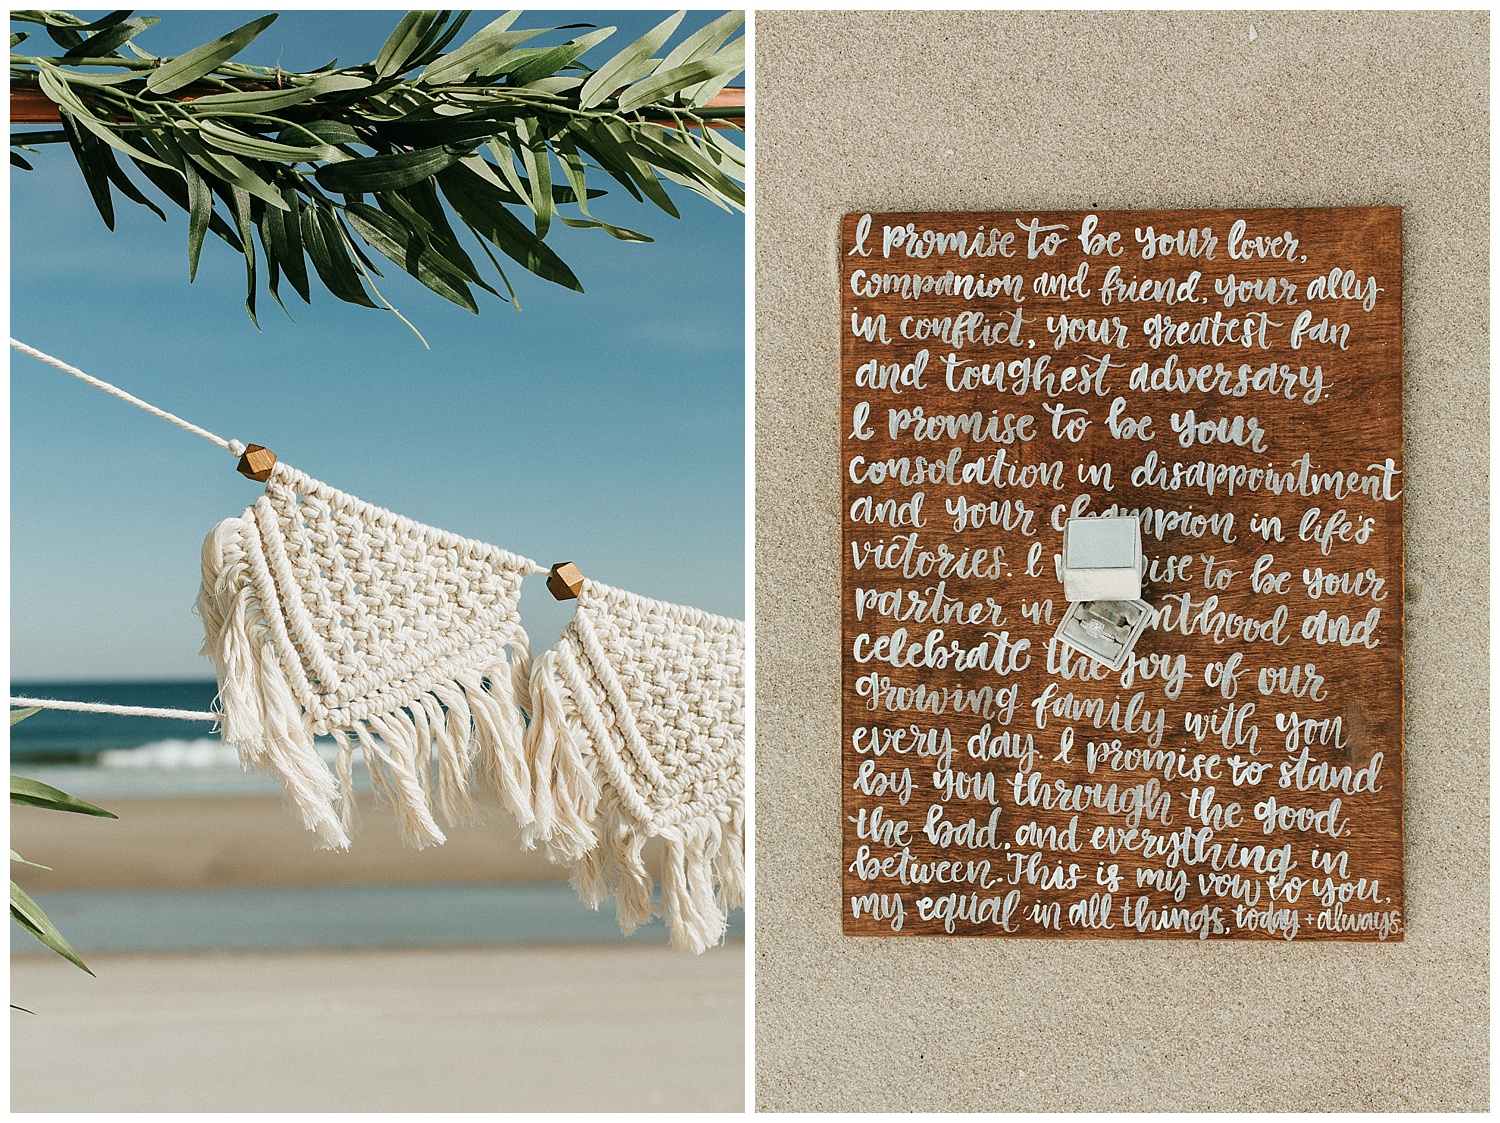 I promise to be your lover,
companion and friend, your ally
in conflict, your greatest fan
and toughest adversary.
I promise to be your
consolation in disappointment
and your champion in life's
victories. I promise to be your
partner in and
celebrate the joy of our
growing family with you
every day. I promise to stand
by you through the good,
the bad, and everything in
between. This is my vow to you,
my equal in all things, today + always.